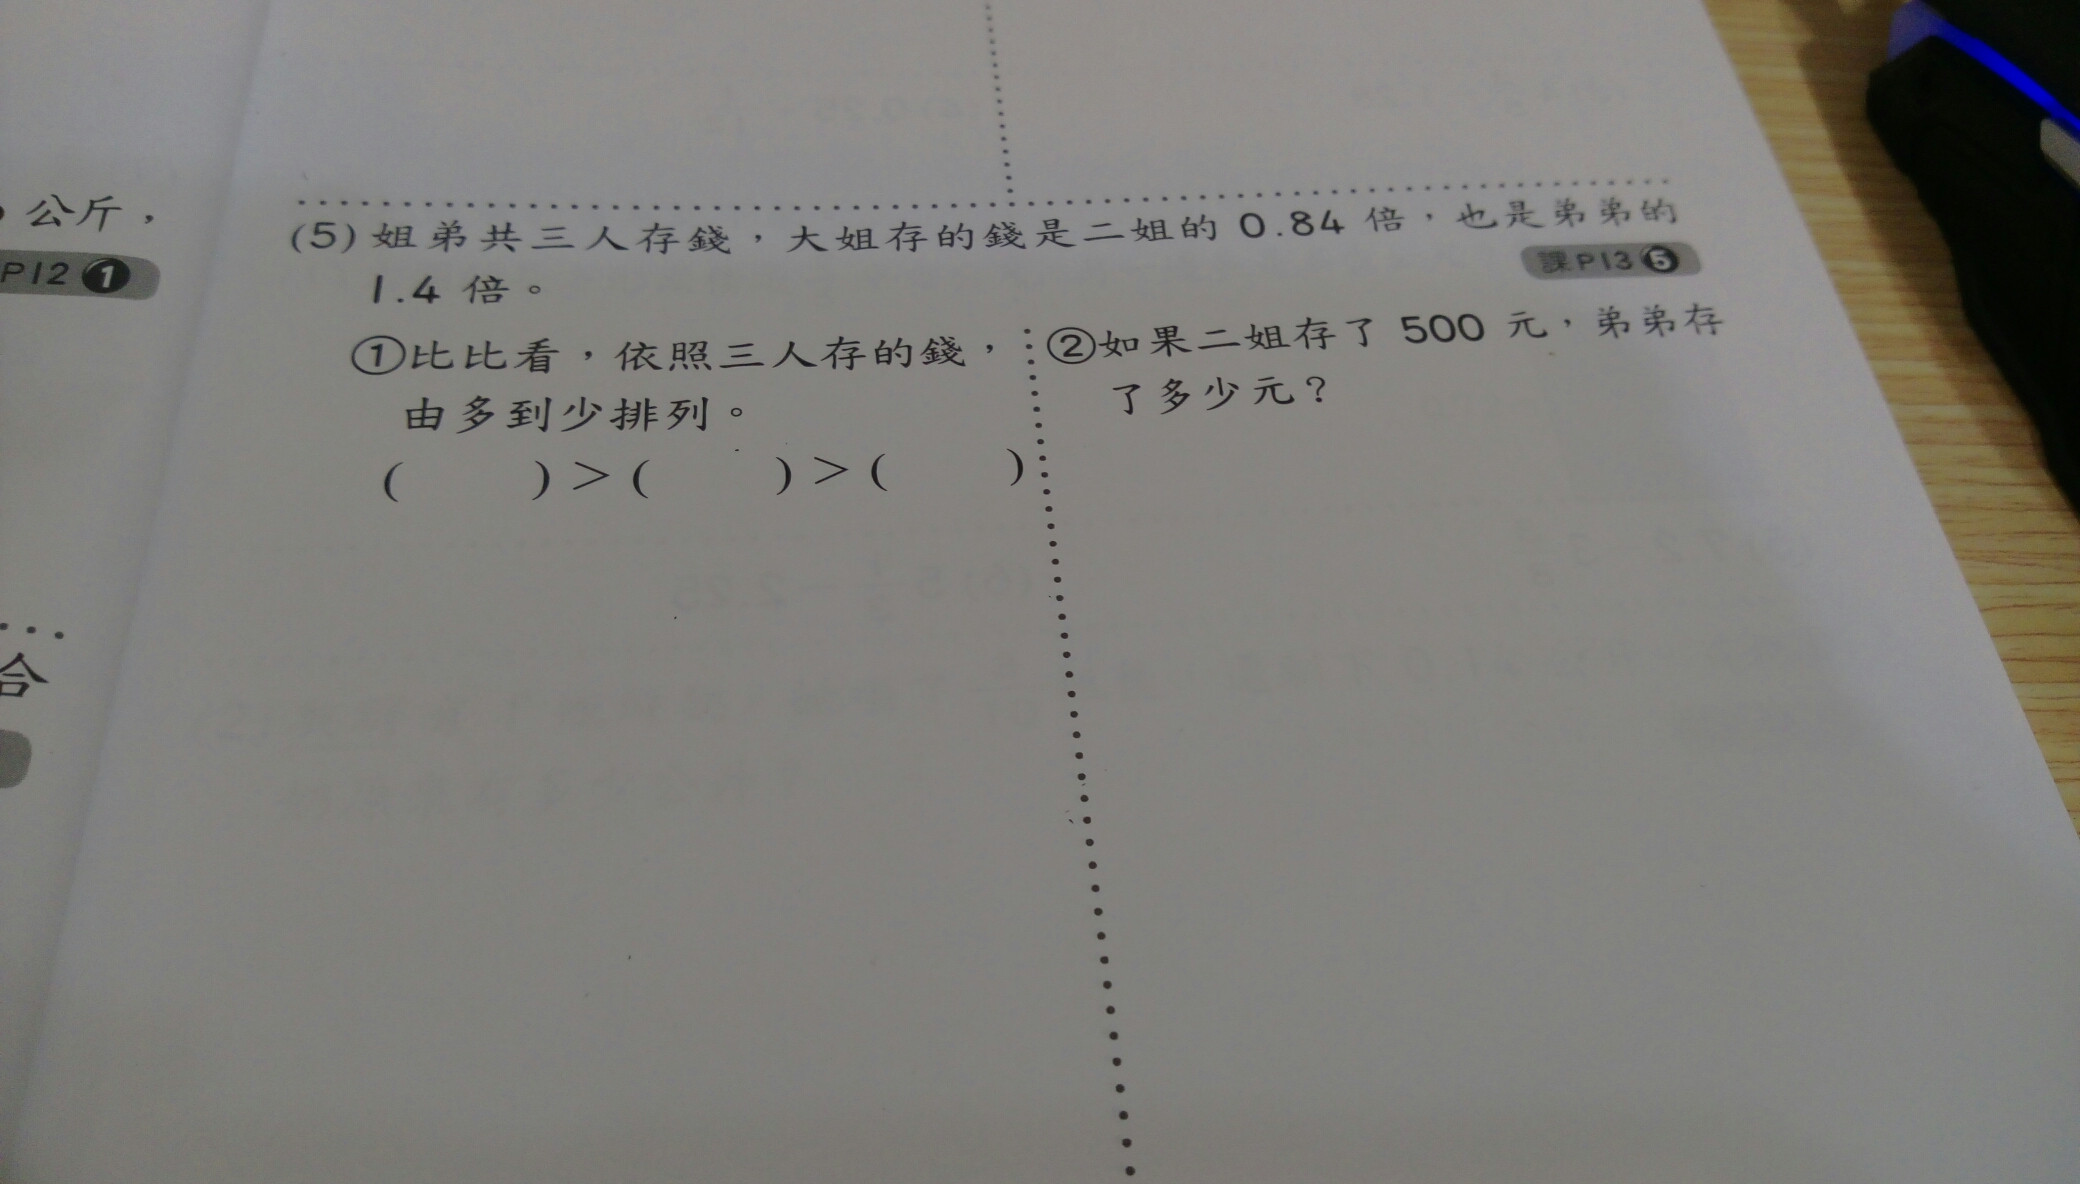 公斤，
P12 1
合
(5) 姐弟共三人存錢，大姐存的錢是二姐的 0.84 倍，也是弟弟的
1.4 倍。
課P13 5
①比比看，依照三人存的錢，
由多到少排列。
(　　)＞(　　)＞(　　)
②如果二姐存了 500 元，弟弟存
了多少元？